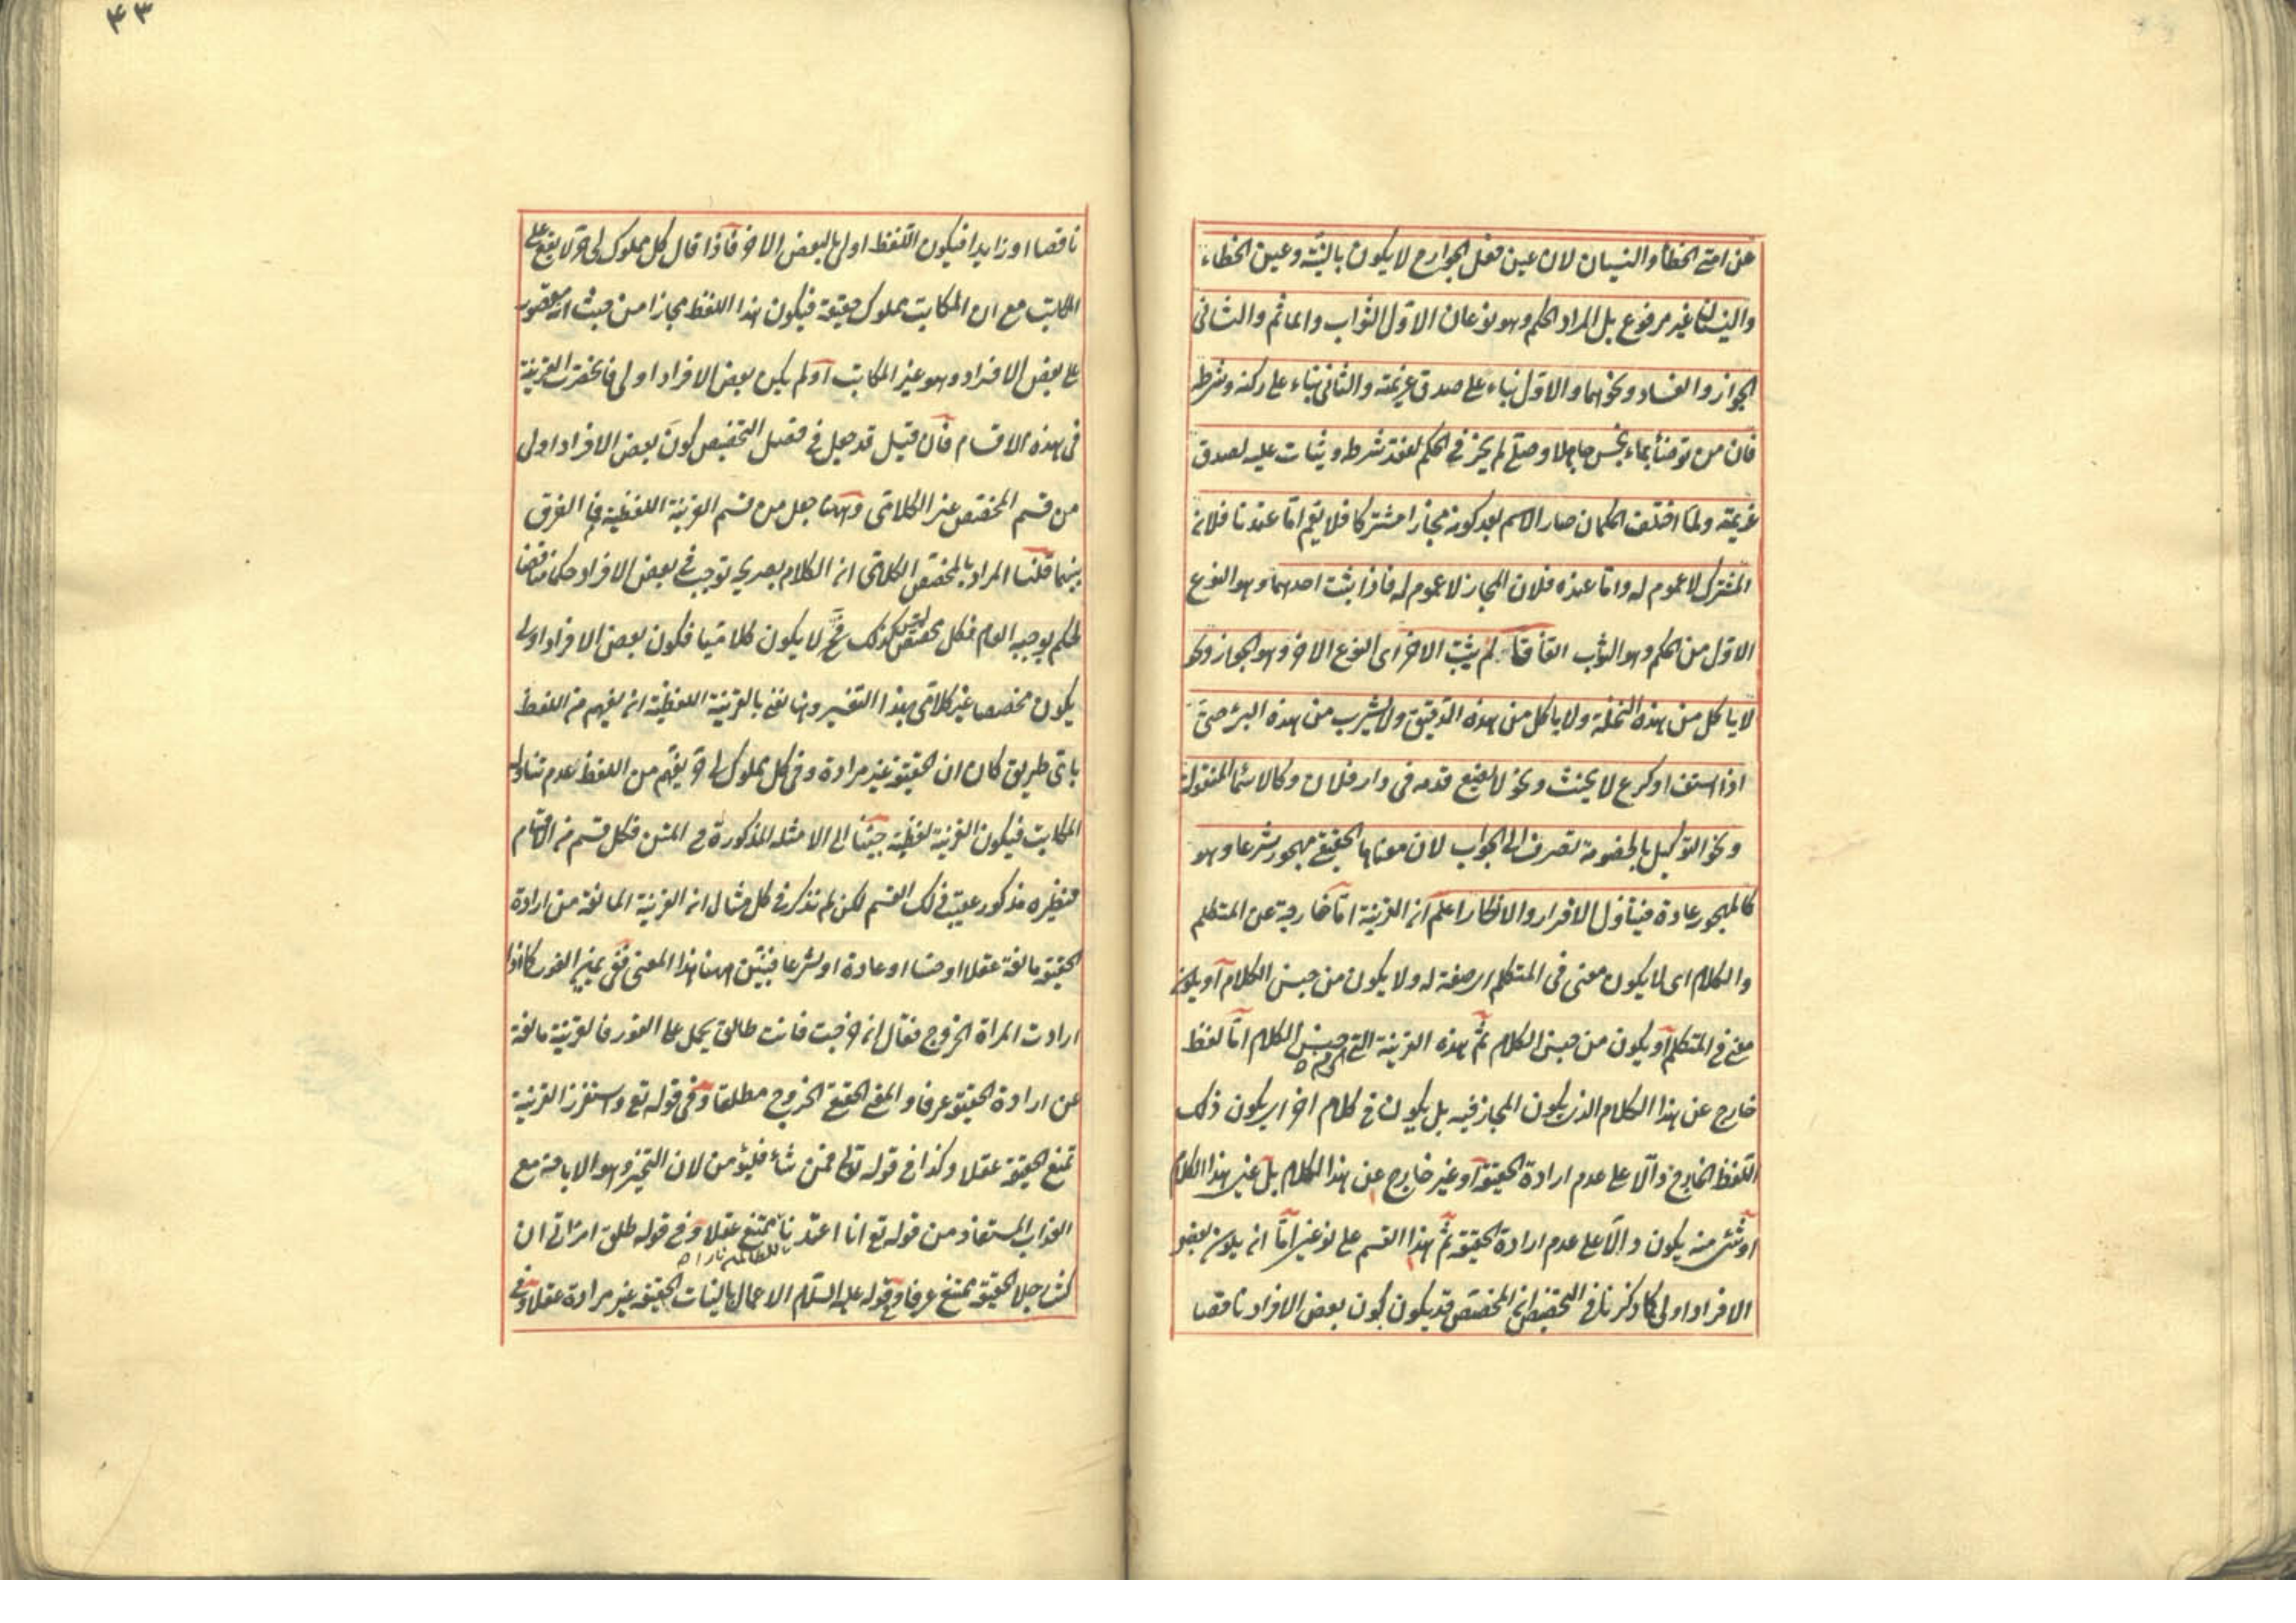 عن امتى الخطأ والنسيان لان عين فعل الجوارح لا يكون بالنية وعين الخطاء
والنسيان غير مرفوع بل المراد الحكم وهو نوعان الاول الثواب والماثم والثانى
الجواز والفساد ونحوهما والاول بناء على صدق عزيمته والثانى بناء على ركنه وشرطه
فان من توضأ بماء نجس جاهلا وصلى لم يجز فى الحكم لفقد شرطه ويثاب عليه لصدق
عزيمته ولما اختلف الحكمان صار الاسم بعد كونه مجازا مشتركا فلا يعم اما عندنا فلان
المشترك لا عموم له واما عنده فلان المجاز لا عموم له فاذا يثبت احدهما وهو النوع
الاول من الحكم وهو الثواب اتفاقا لم يثبت الاخر اى النوع الاخر وهو الجواز ونحو
لا ياكل من هذه النخلة ولا ياكل من هذه الدقيق ولا يشرب من هذه البئر حتى
اذا استف او كرع لا يحنث ونحو لا يضع قدمه فى دار فلان وكالاسماء المنقولة
ونحو التوكيل بالخصومة تصرف الى الجواب لان معناها الحقيقى مهجور شرعا وهو
كالمهجور عادة فيتناول الاقرار والانكار اعلم ان القرينة اما خارجة عن المتكلم
والكلام اى لا يكون معنى فى المتكلم اى صفة له ولا يكون من جنس الكلام او يكون
معنى فى المتكلم او يكون من جنس الكلام ثم هذه القرينة التى هى من جنس الكلام اما لفظ
خارج عن هذا الكلام الذى يكون المجاز فيه بل يكون فى كلام اخر اى يكون ذلك
اللفظ الخارج دالا على عدم ارادة الحقيقة او غير خارج عن هذا الكلام بل عين هذا الكلام
او شئ منه يكون دالا على عدم ارادة الحقيقة ثم هذا القسم على نوعين اما ان يكون بعض
الافراد اولى كما ذكرنا فى التخصيص ان المخصص قد يكون كون بعض الافراد ناقصا
٤٣
ناقصا او زايدا فيكون اللفظ اولى بالبعض الاخر فاذا قال كل مملوك لى حر لا يقع على
المكاتب مع ان المكاتب مملوك حقيقة فيكون هذا اللفظ مجازا من حيث انه مقصور
على بعض الافراد وهو غير المكاتب او لم يكن بعض الافراد اولى فانحصرت القرينة
فى هذه الاقسام فان قيل قد جعل فى فصل التخصيص كون بعض الافراد اولى
من قسم المخصص غير الكلامى وههنا جعل من قسم القرينة اللفظية فما الفرق
بينهما قلنا المراد بالمخصص الكلامى ان الكلام بصريحه يوجب فى بعض الافراد حكما مناقضا
لحكم يوجبه العام فكل مخصص ليس كذلك فح لا يكون كلاميا فكون بعض الافراد اولى
يكون مخصصا غير كلامى بهذا التفسير وهنا نعنى بالقرينة اللفظية ان يفهم من اللفظ
باى طريق كان ان الحقيقة غير مرادة وفى كل مملوك لى حر يفهم من اللفظ عدم تناوله
المكاتب فيكون القرينة لفظية جئنا الى الامثلة المذكورة فى المتن فكل قسم من الاقسام
فنظيره مذكور عقيب ذلك القسم لكن لم نذكر فى كل مثال ان القرينة المانعة من ارادة
الحقيقة مانعة عقلا او حسا او عادة او شرعا فنبين ههنا هذا المعنى ففى يمين الفور كما اذا
ارادت المراة الخروج فقال ان خرجت فانت طالق يحمل على الفور فالقرينة مانعة
عن ارادة الحقيقة عرفا والمعنى الحقيقى الخروج مطلقا وفى قوله تع واستفزز القرينة
تمنع الحقيقة عقلا وكذا فى قوله تعالى فمن شاء فليؤمن لان التخيير وهو الاباحة مع
العذاب المستفاد من قوله تع انا اعتدنا للظالمين نارا يمتنع عقلا وفى قوله طلق امراتى ان
كنت رجلا الحقيقة يمتنع عرفا وفى قوله عليه السلام الاعمال بالنيات الحقيقة غير مرادة عقلا وفى